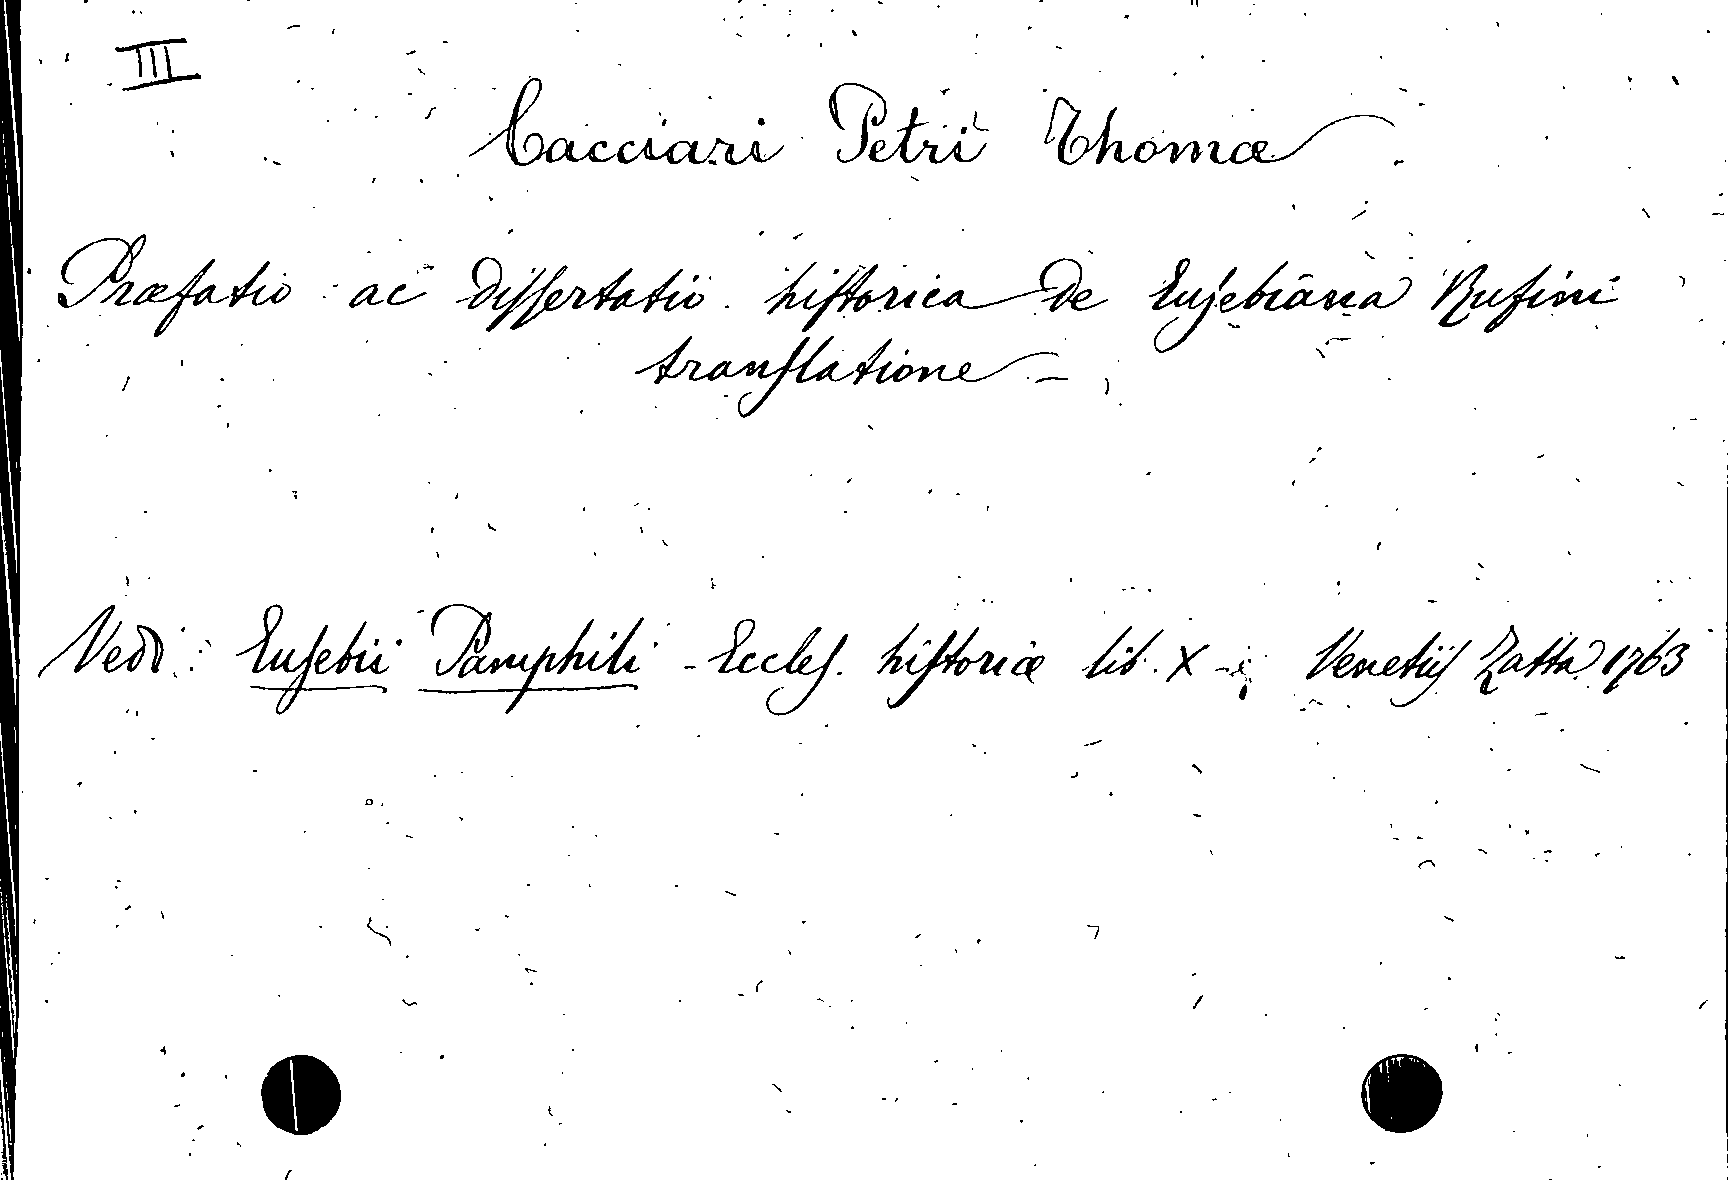 III
Cacciari Petri Thomæ
Præfatio ac dissertatio historica de Eusebiana Rufini
translatione -
Vedi: Eusebii Pamphili - Eccles. historiæ lib. X - Venetiis Zatta 1763